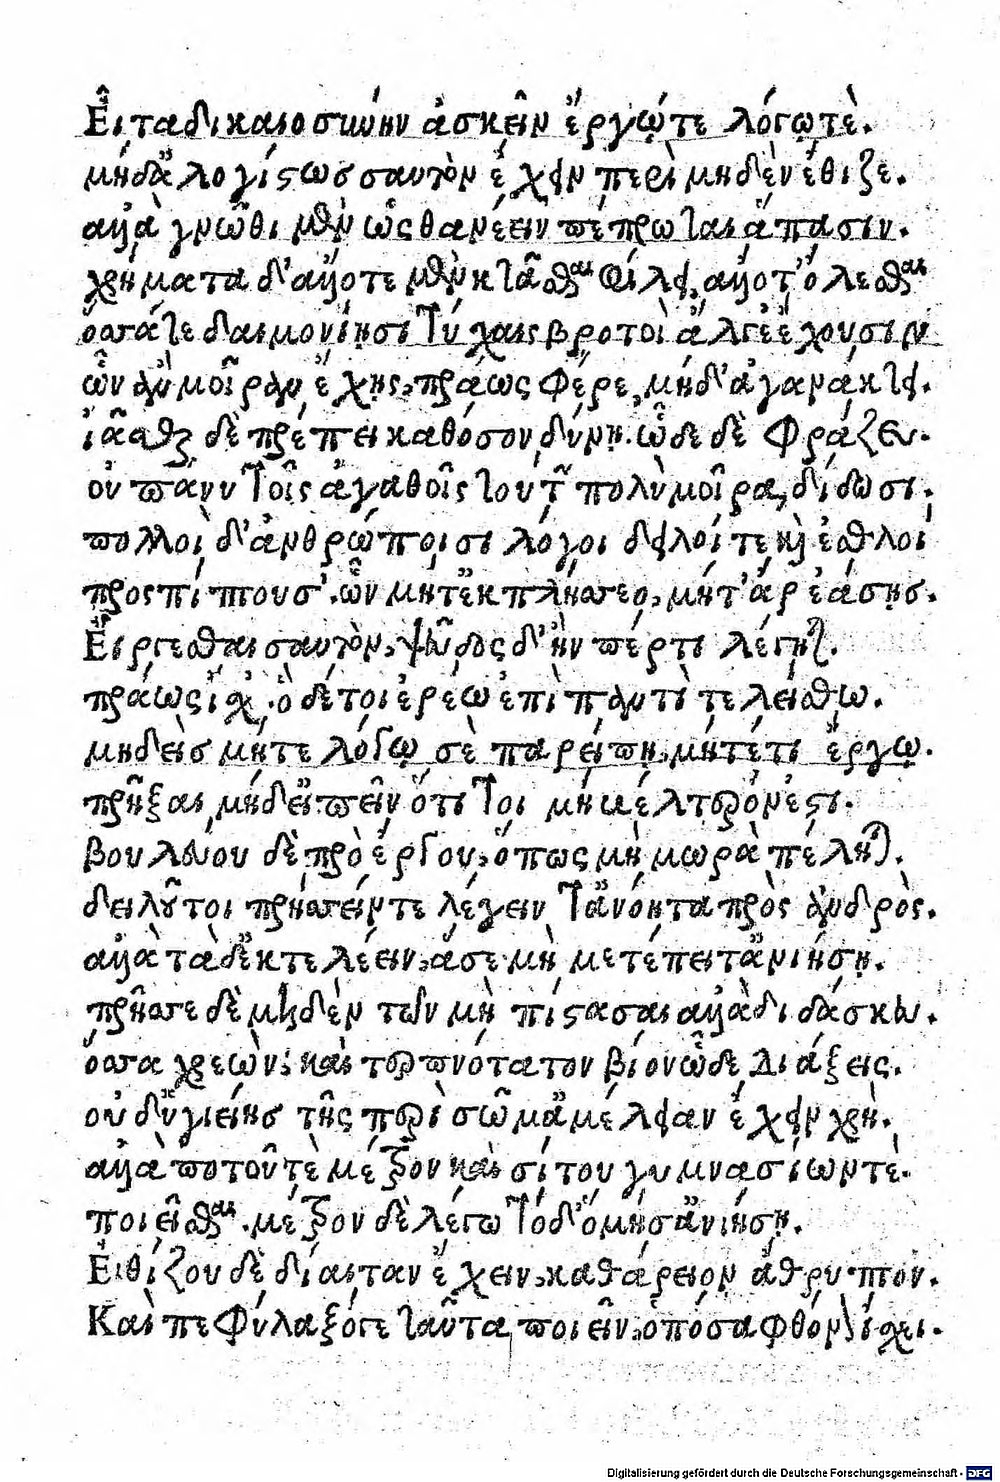 Εἶτα δικαιοσύνην ἀσκεῖν ἔργῳ τε λόγῳ τὲ.
μηδ' ἀλογίστως σαυτὸν ἔχειν περὶ μηδὲν ἔθιζε.
ἀλλὰ γνῶθι μὲν ὡς θανέειν πέπρωται ἅπασιν.
χρήματα δ' ἄλλοτε μὲν κτᾶσθαι φιλεῖ, ἄλλοτ' ὀλέσθαι
ὅσσά τε δαιμονίῃσι τύχαις βροτοὶ ἄλγε' ἔχουσιν
ὧν ἂν μοῖραν ἔχῃς, πράως φέρε, μηδ' ἀγανάκτει.
ἰᾶσθαι δὲ πρέπει καθόσον δύνῃ. ὧδε δὲ φράζευ.
οὐ πάνυ τοῖς ἀγαθοῖς τουτῶν πολὺ μοῖρα δίδωσι.
πολλοὶ δ' ἀνθρώποισι λόγοι δειλοί τε καὶ ἐσθλοί
προσπίπτουσ'. ὧν μήτ' ἐκπλήσσεο, μήτ' ἄρ' ἐάσῃς.
Εἴργεσθαι σαυτὸν, ψεῦδος δ' ἤν πέρ τι λέγηται.
πράως ἴσχ'. ὃ δέ τοι ἐρέω ἐπὶ παντὶ τελείσθω.
μηδεὶς μήτε λόγῳ σὲ παρείπῃ, μήτέ τι ἔργῳ.
πρῆξαι, μήδ' εἰπεῖν ὅτι τοι μὴ βέλτερόν ἐστι.
βουλεύου δὲ πρὸ ἔργου, ὅπως μὴ μωρὰ πέληται.
δειλοῦ τοι πρήσσειν τε λέγειν τ' ἀνόητα πρὸς ἀνδρὸς.
ἀλλὰ τὰ δ' ἐκτελέειν, ἅ σε μὴ μετέπειτ' ἀνιήσῃ.
πρῆσσε δὲ μηδὲν τῶν μὴ πίστασαι ἀλλὰ διδάσκευ.
ὅσσα χρεὼν; καὶ τερπνότατον βίον ὧδε διάξεις.
οὐ δ' ὑγιείης τῆς περὶ σῶμ' ἀμέλειαν ἔχειν χρὴ.
ἀλλὰ ποτοῦ τὲ μέτρον καὶ σίτου γυμνασίων τὲ.
ποιεῖσθαι. μέτρον δὲ λέγω τόδ' ὃ μή σ' ἀνιήσῃ.
Εἰθίζου δὲ δίαιταν ἔχειν, καθάρειον ἄθρυπτον.
Καὶ πεφύλαξό γε ταῦτα ποιεῖν, ὁπόσα φθόνον ἴσχει.
Digitalisierung gefördert durch die Deutsche Forschungsgemeinschaft - DFG